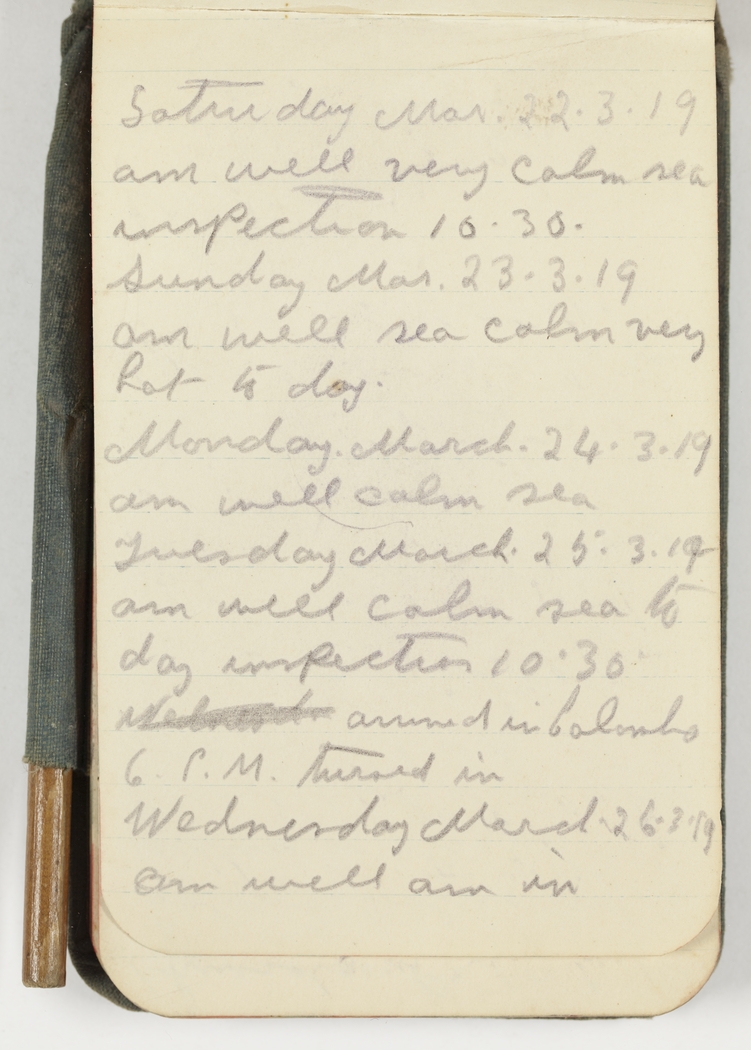 Saturday Mar. 22.3.19
am well very calm sea
inspection 10.30.
Sunday Mar. 23.3.19
am well sea calm very
hot to day.
Monday. March. 24.3.19
am well calm sea
Tuesday March. 25.3.19
am well calm sea to
day inspection 10.30
arrived in Colombo
6. P. M. turned in
Wednesday March. 26.3.19
am well am in